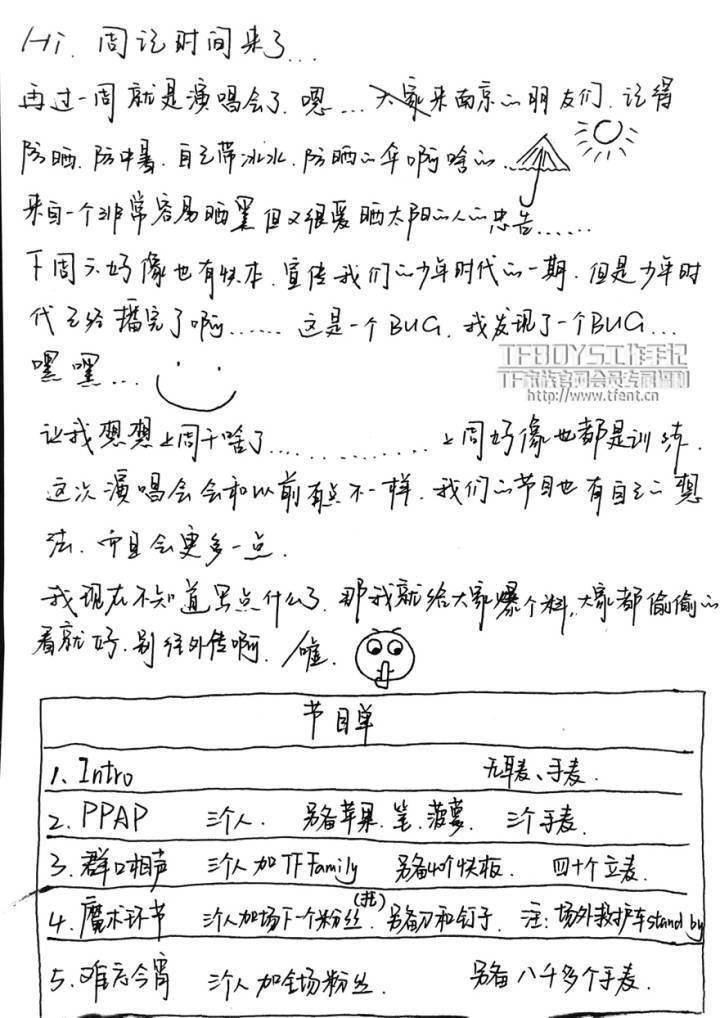 Hi. 周记时间来了...
再过一周就是演唱会了. 嗯.... 来南京的朋友们. 记得
防晒. 防中暑. 自己带冰水. 防晒的伞啊啥的...
来自一个非常容易晒黑但又很爱晒太阳的人的忠告......
下周六好像也有快本. 宣传我们的少年时代的一期. 但是少年时
代已经播完了啊...... 这是一个BUG. 我发现了一个BUG...
嘿嘿...
TFBOYS工作手记
TF家族官网会员专属福利
http://www.tfent.cn
让我想想上周干啥了.............. 上周好像也都是训练.
这次演唱会会和以前有点不一样. 我们的节目也有自己的想
法. 而且会更多一点.
我现在不知道写点什么了. 那我就给大家爆个料, 大家都偷偷的
看就好. 别往外传啊. 嘘.
节目单
1. Intro 无耳麦、手麦.
2. PPAP 三个人. 另备苹果. 笔. 菠萝. 三个手麦.
3. 群口相声 三个人加TF Family 另备40个快板. 四十个立麦.
4. 魔术环节 三个人加场下一个粉丝(托). 另备刀和钉子. 注: 场外救护车stand by
5. 难忘今宵 三个人加全场粉丝. 另备八千多个手麦.